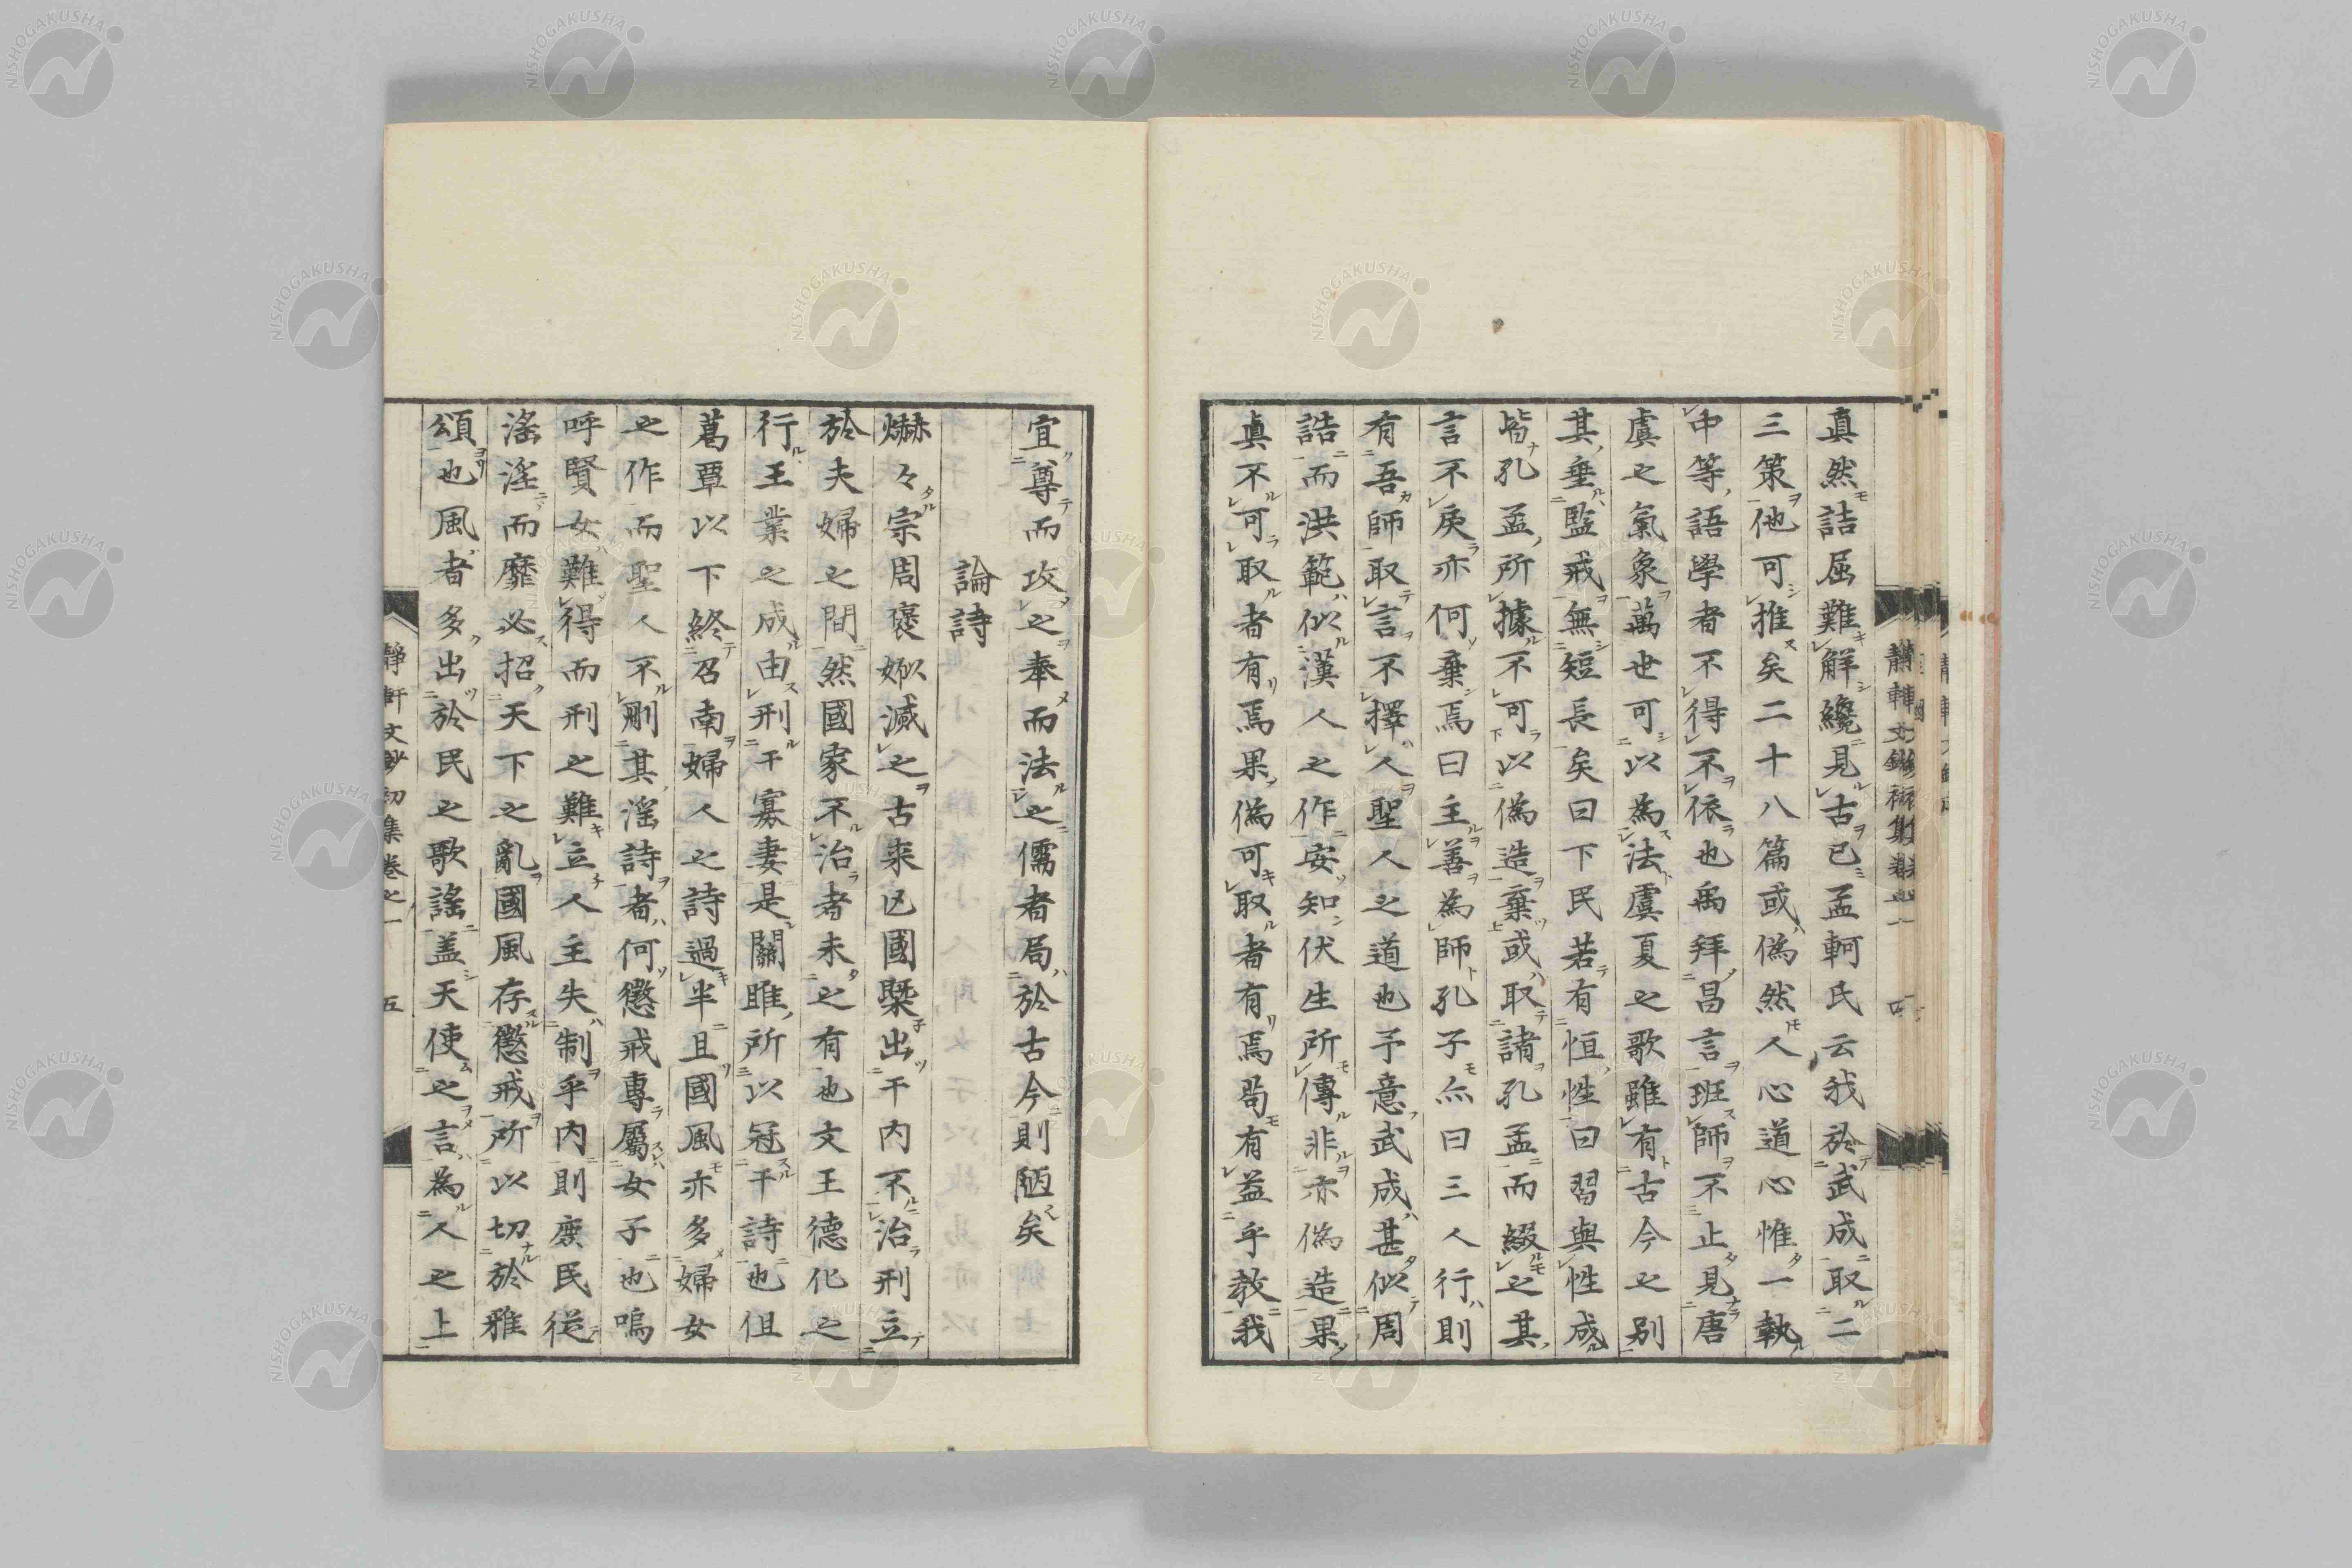 真然詰屈難解纔見古已孟軻氏云我於武成取二
三策他可推矣二十八篇或偽然人心道心惟一執
中等語學者不得不依也禹拜昌言班師不止見唐
虞之氣象萬世可以為法虞夏之歌雖有古今之別
其垂監戒無短長矣曰下民若有恒性曰習與性成
皆孔孟所據不可以偽造棄或取諸孔孟而綴之其
言不戾亦何棄焉曰主善為師孔子亦曰三人行則
有吾師取言不擇人聖人之道也予意武成甚似周
誥而洪範似漢人之作安知伏生所傳非亦偽造果
真不可取者有焉果偽可取者有焉苟有益乎教我
宜尊而攻之奉而法之儒者局於古今則陋矣
論詩
爀々宗周褒姒滅之古来凶國槩出于内不治刑立
於夫婦之間然國家不治者未之有也文王德化之
行王業之成由刑于寡妻是關雎所以冠于詩也但
葛覃以下終召南婦人之詩過半且國風亦多婦女
之作而聖人不刪其淫詩者何懲戒專屬女子也嗚
呼賢女難得而刑之難立人主失制乎内則庶民從
淫淫而靡必招天下之亂國風存懲戒所以切於雅
頌也風者多出於民之歌謠盖天使之言為人之上
靜軒文鈔初集卷之一
五
NISHOGAKUSHA